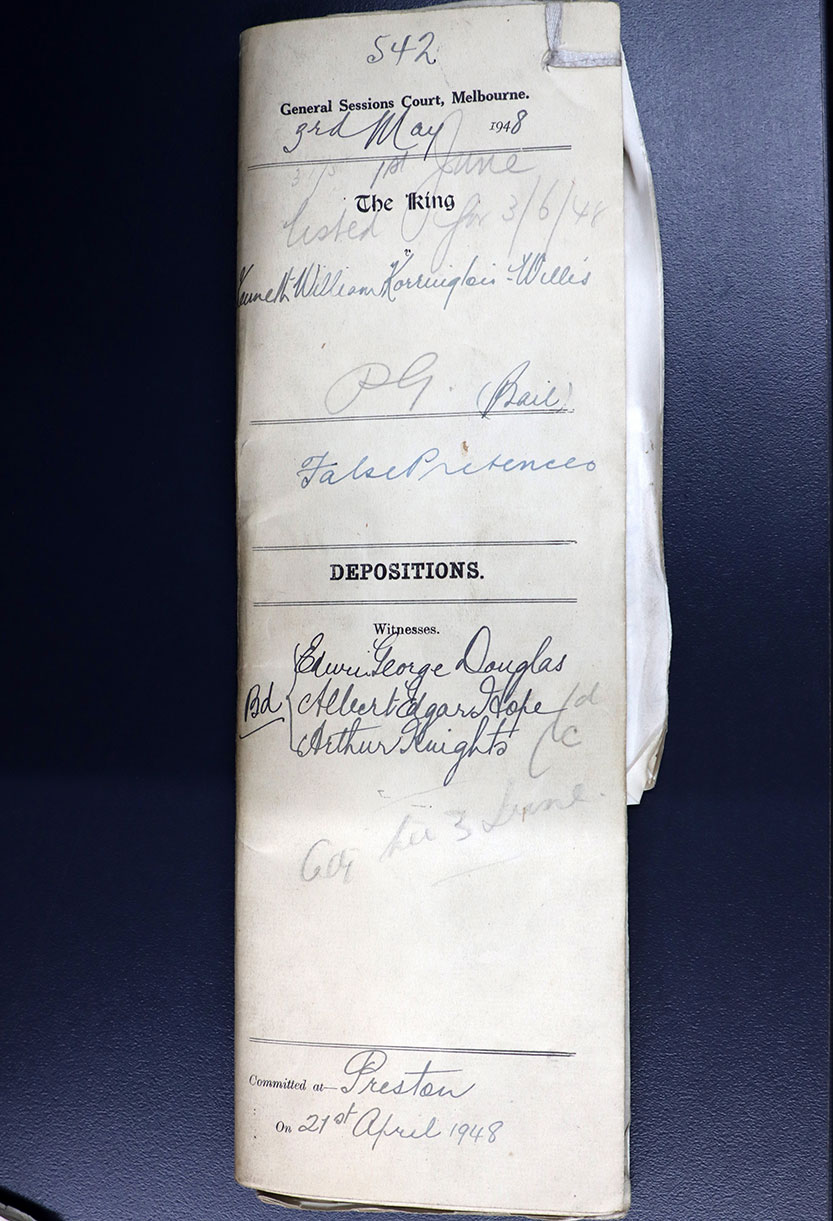 542
General Sessions Court, Melbourne.
3rd May 1948
31/5 1st June
The King
listed for 3/6/48
v
Kenneth William Korringlois-Willis
P G. (Bail)
False Pretences
DEPOSITIONS.
Witnesses.
Edwin George Douglas
Bd Albert Edgar Hope
Arthur Knights
3 June.
Committed at— Preston
On 21st April 1948